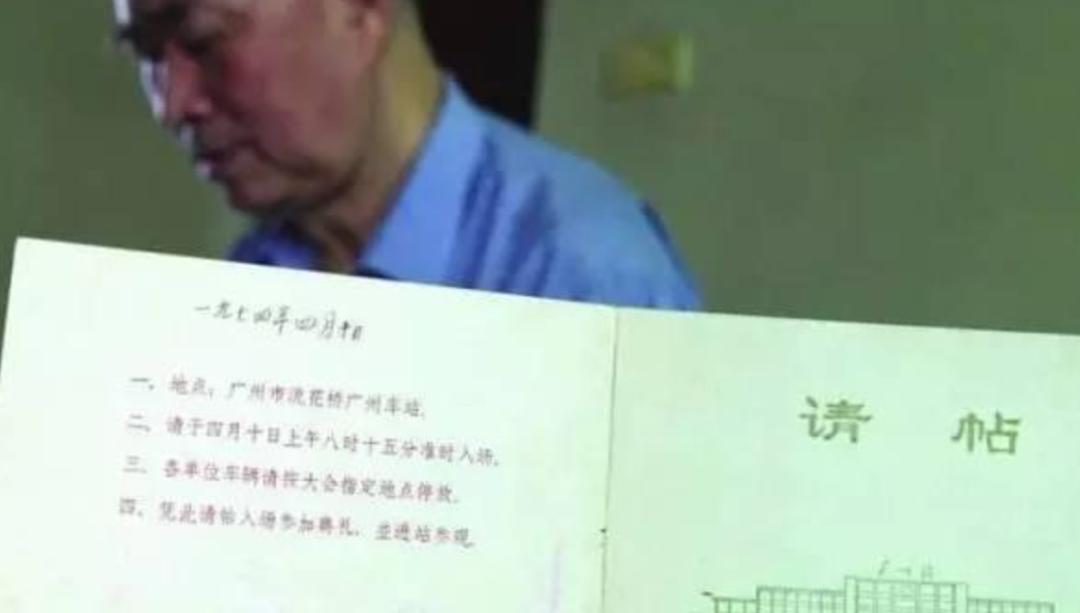 一九七四年四月十日
一、地点：广州市流花桥广州车站。
二、请于四月十日上午八时十五分准时入场。
三、各单位车辆请按大会指定地点停放。
四、凭此请帖入场参加典礼，並进站参观
请 帖